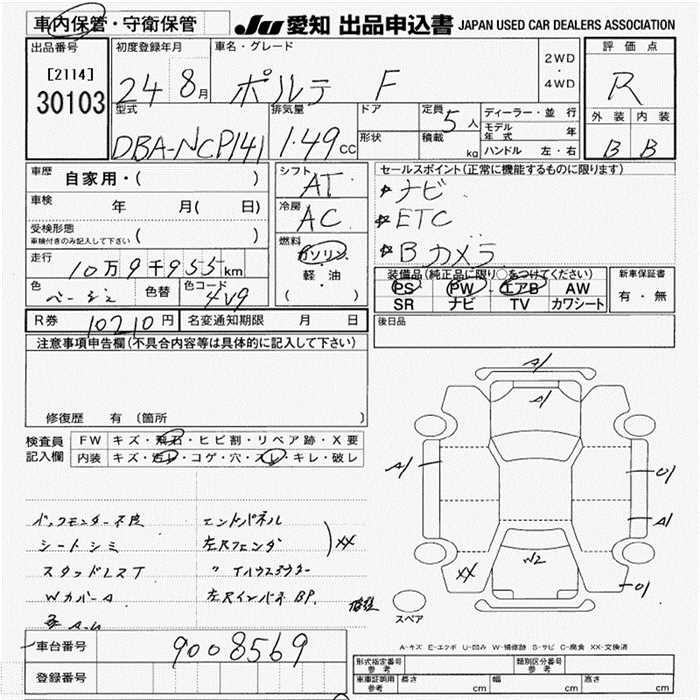 車内保管・守衛保管
JU 愛知 出品申込書 JAPAN USED CAR DEALERS ASSOCIATION
出品番号 初度登録年月 車名・グレード 評価点
[2114]
30103
24 8月 ポルテ F 2WD ・ 4WD R
型式 排気量 ドア 定員 5人 ディーラー・並行 外装 内装
モデル年式 年
DBA-NCP141 1.49cc 形状 積載 kg ハンドル 左・右 B B
車歴 自家用・( )
シフト AT
セールスポイント(正常に機能するものに限ります)
車検 年 月(日)
冷房 AC
ナビ
ETC
Bカメラ
受検形態
車検付きのみ記入して下さい ( )
燃料 ガソリン
軽・油
( )
走行 10万9千955km
装備品(純正品に限り○をつけてください) 新車保証書
PS PW エアB AW
SR ナビ TV カワシート
有・無
色 ベージュ 色替 色コード 4V9
R券 10210円 名変通知期限 月 日
後日品
注意事項申告欄(不具合内容等は具体的に記入して下さい)
修復歴 有(箇所
検査員記入欄
FW キズ・飛石・ヒビ割・リペア跡・X要
内装 キズ・汚レ・コゲ・穴・スレ・キレ・破レ
バックモニター不良 エンドパネル
シートシミ 左Rフェンダ XX
スタッドレスT 〃 Tハウスアウター
Wカバー A 左Rインパネ BP.
A1
A1
A1
U1
A1
W2
XX
U1
スペア
A-キズ E-エクボ U-凹み W-補修跡 S-サビ C-腐食 XX-交換済
車台番号 9008569
登録番号
形式指定番号 参考 類別区分番号 参考
車庫証明用 参考 長さ cm 幅 cm 高さ cm